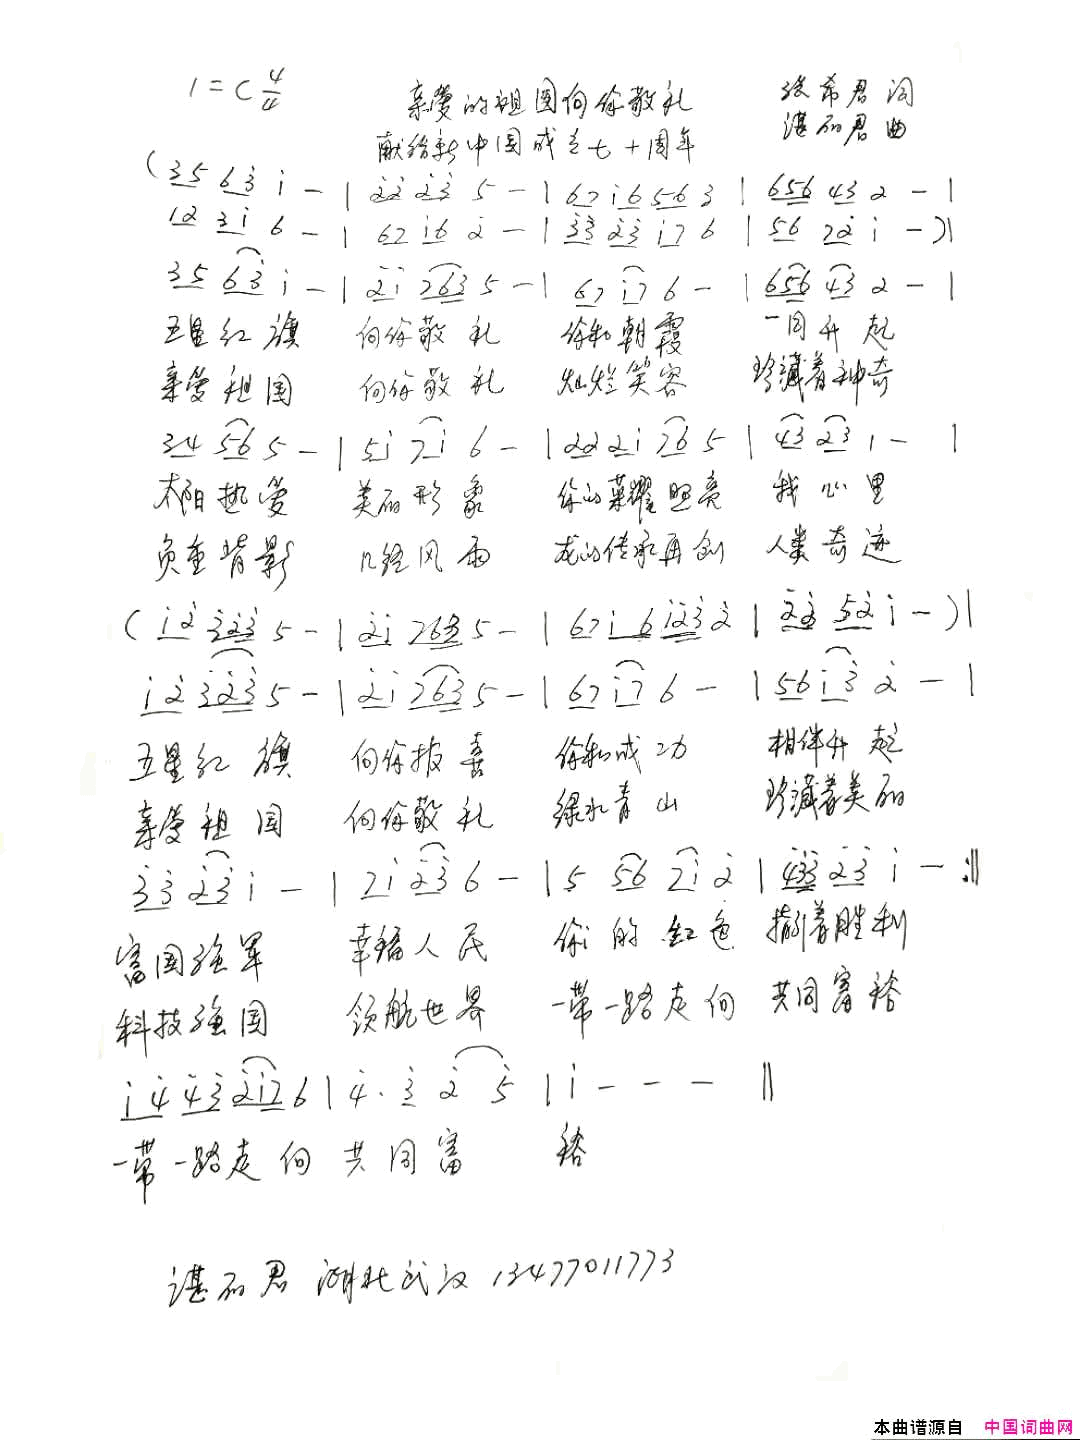 1=C 4/4 亲爱的祖国向你敬礼 张希君 词
献给新中国成立七十周年 湛丽君 曲
(35 63 i - | 22 23 5 - | 67 i6 56 3 | 656 43 2 - |
12 3i 6 - | 67 i6 2 - | 33 23 i7 6 | 56 72 i -)|
35 63 i - | 2i 763 5 - | 67 i7 6 - | 656 43 2 - |
五星红旗 向你敬礼 你和朝霞 一同升起
亲爱祖国 向你敬礼 灿烂笑容 珍藏着神奇
34 56 5 - | 5i 7i 6 - | 222i 76 5 | 43 23 1 - |
太阳热爱 美丽形象 你的荣耀照亮 我心里
负重背影 几经风雨 龙的传承再创 人类奇迹
(i2 323 5 - | 2i 763 5 - | 67i 6 i23 2 | 23 52 i -)|
i2 323 5 - | 2i 763 5 - | 67 i7 6 - | 56 i3 2 - |
五星红旗 向你报喜 你和成功 相伴升起
亲爱祖国 向你敬礼 绿水青山 珍藏着美丽
33 23 i - | 7i 23 6 - | 5 56 7i 2 | 433 23 i - :||
富国强军 幸福人民 你的红色 指引着胜利
科技强国 领航世界 一带一路走向 共同富裕
i4 43 2i7 6 | 4· 3 2 5 | i - - - ||
一带一路走向 共同富 裕
湛丽君 湖北武汉 13477011773
本曲谱源自 中国词曲网